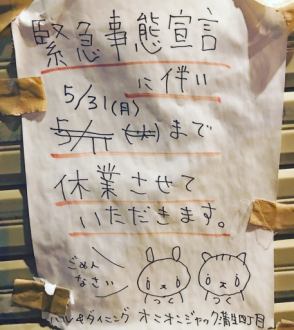 緊急事態宣言
に伴い
5/31(月)
5/11 (火)まで
休業させて
いただきます。
ごめん
なさい
つく つく
バル&ダイニング オニオンジャック蒲生四丁目